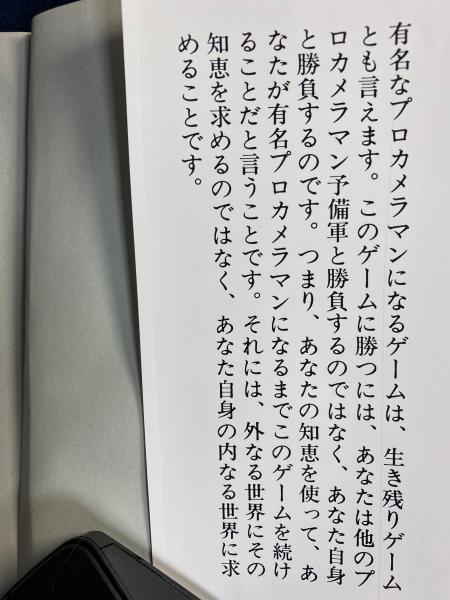 有名なプロカメラマンになるゲームは、生き残りゲーム
とも言えます。このゲームに勝つには、あなたは他のプ
ロカメラマン予備軍と勝負するのではなく、あなた自身
と勝負するのです。つまり、あなたの知恵を使って、あ
なたが有名プロカメラマンになるまでこのゲームを続け
ることだと言うことです。それには、外なる世界にその
知恵を求めるのではなく、あなた自身の内なる世界に求
めることです。